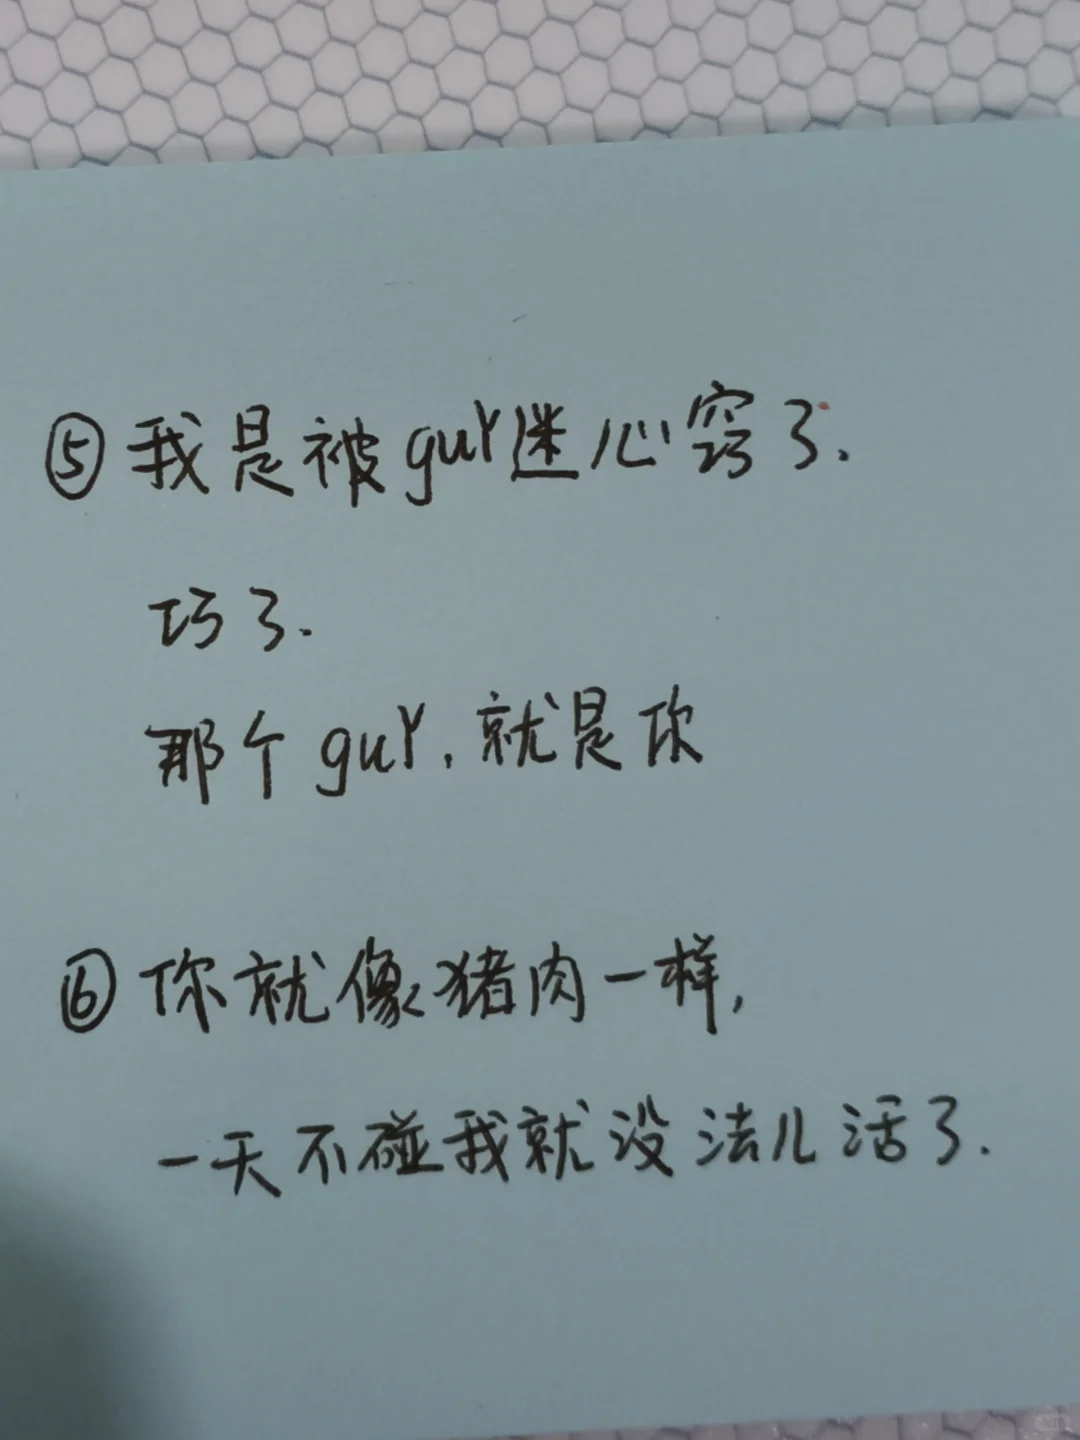 ⑤我是被guY迷心窍了.
巧了.
那个guY.就是你
⑥你就像猪肉一样,
一天不碰我就没法儿活了.